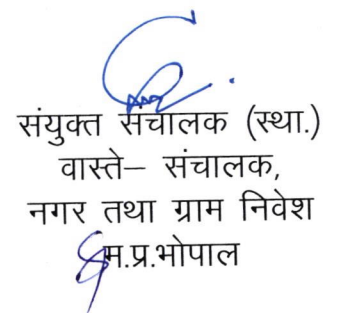 संयुक्त संचालक (स्था.)
वास्ते– संचालक,
नगर तथा ग्राम निवेश
म.प्र.भोपाल